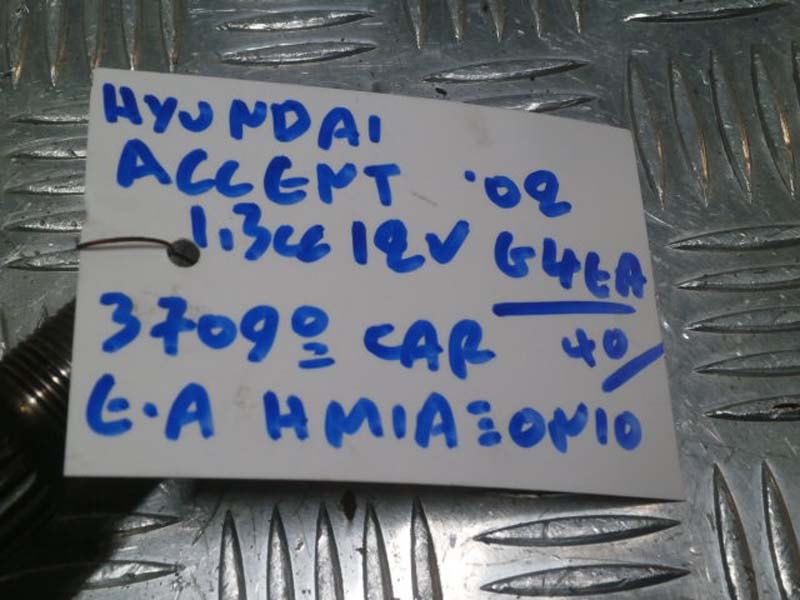 HYUNDAI
ACCENT '02
1.3cc 12V G4EA
3709º CAR 40/
E.A ΗΜΙΑΞΟΝΙΟ